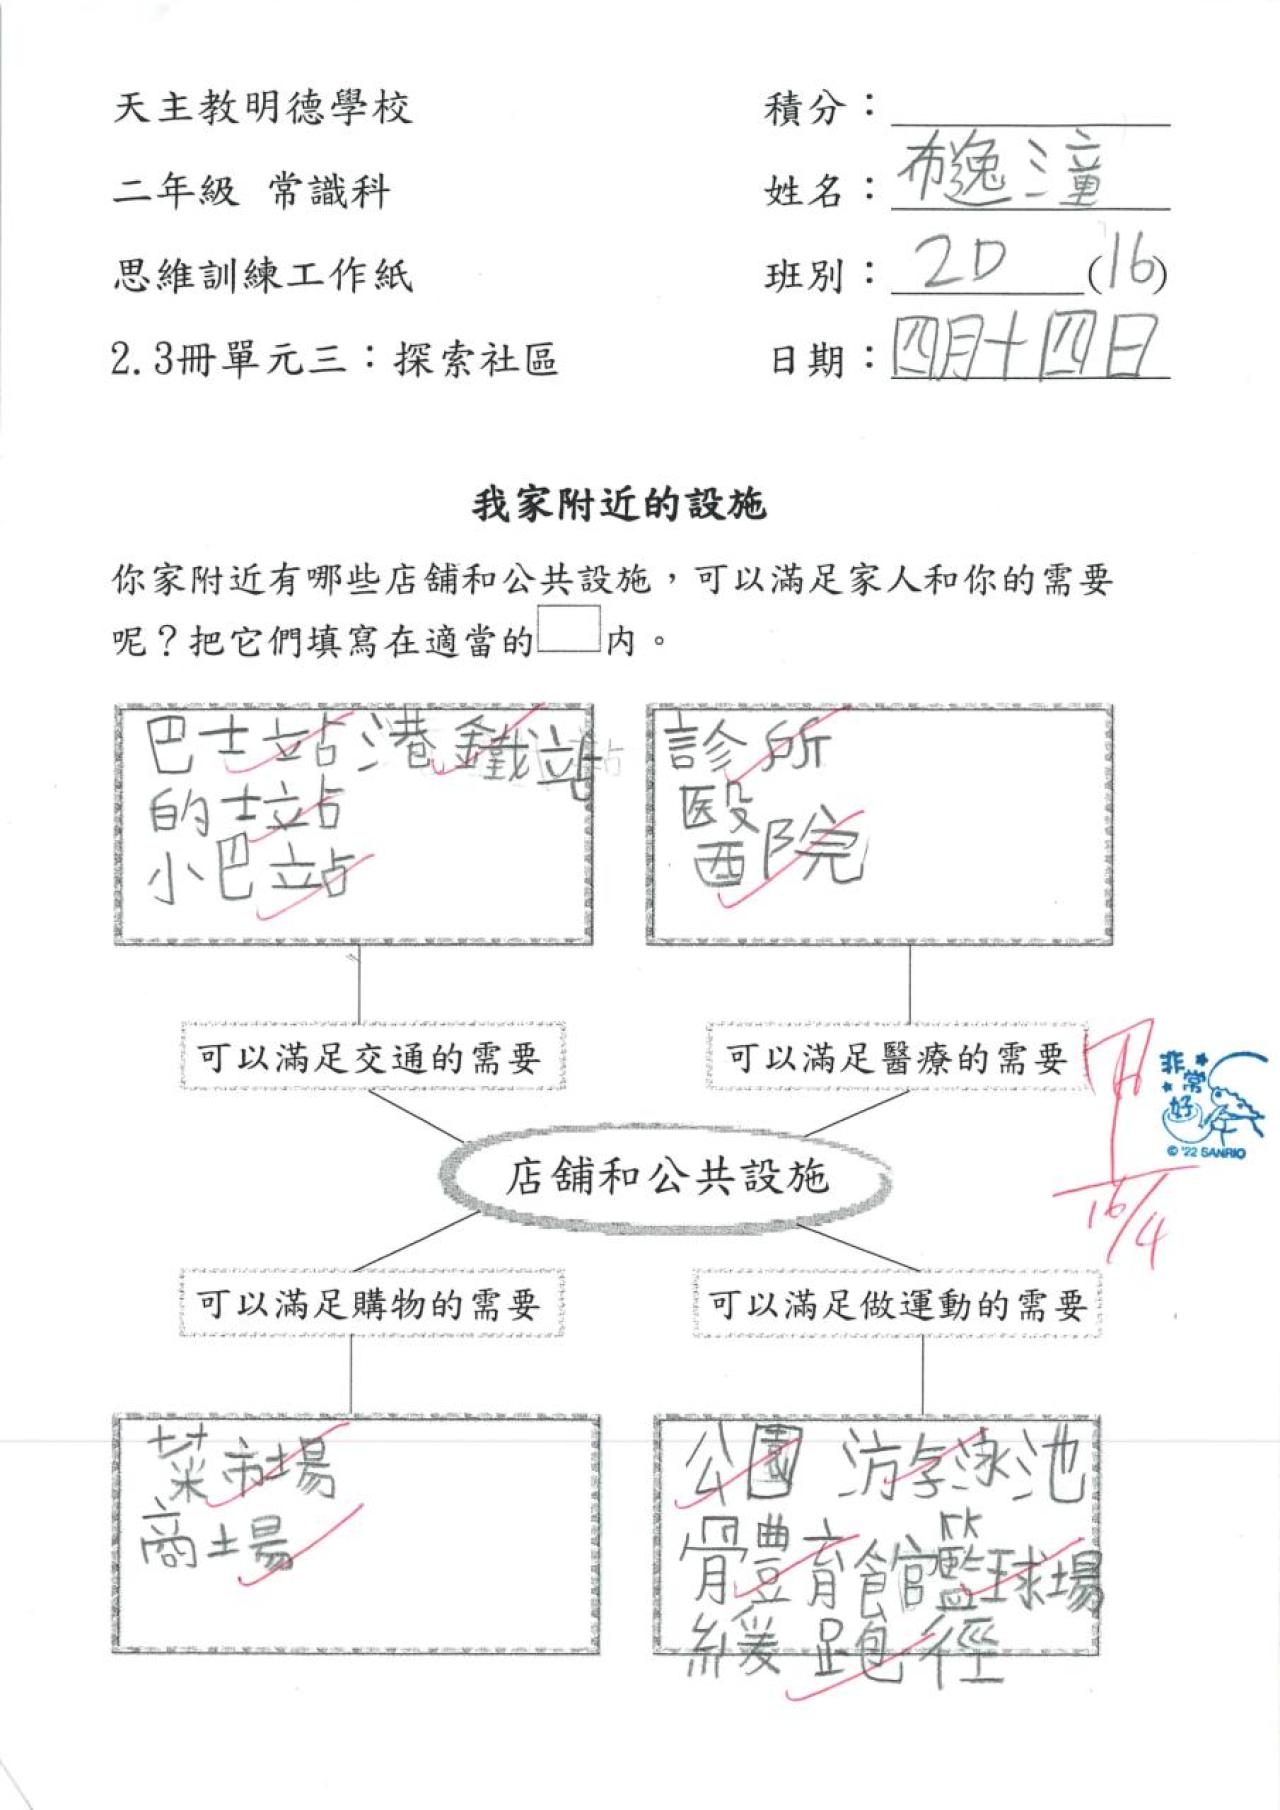 天主教明德學校
積分：
二年級 常識科
姓名：布逸潼
思維訓練工作紙
班別：2D (16)
2.3冊單元三：探索社區
日期：四月十四日
我家附近的設施
你家附近有哪些店舖和公共設施，可以滿足家人和你的需要
呢？把它們填寫在適當的 內。
巴士站 港鐵站
的士站
小巴站
診所
醫院
可以滿足交通的需要
可以滿足醫療的需要
甲
16/4
非常好
© '22 SANRIO
店舖和公共設施
可以滿足購物的需要
可以滿足做運動的需要
菜市場
商場
公園 游泳池
體育館 籃球場
緩跑徑